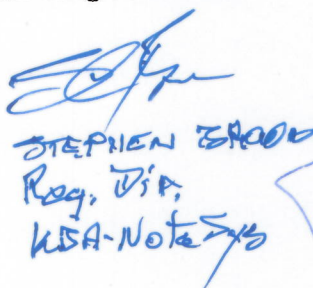 STEPHEN BROOD
Reg. Dir.
KBA-NotaSys